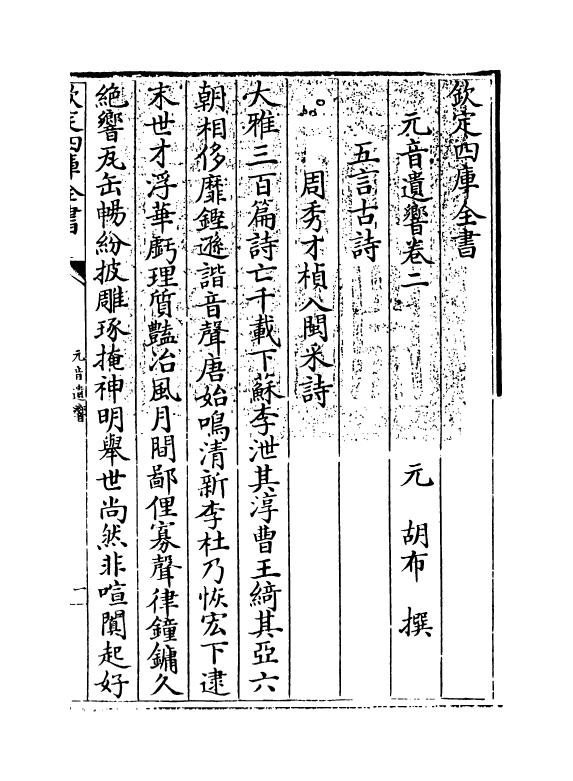 欽定四庫全書
元音遺響卷二　元　胡布　撰
五言古詩
周秀才楨入閩采詩
大雅三百篇詩亡千載下蘇李泄其淳曹王綺其亞六
朝相侈靡鏗遜諧音聲唐始鳴清新李杜乃恢宏下逮
末世才浮華虧理質豔冶風月間鄙俚寡聲律鐘鏞久
絶響瓦缶暢紛披雕琢掩神明舉世尚然非喧闐起好
欽定四庫全書
元音遺響
一